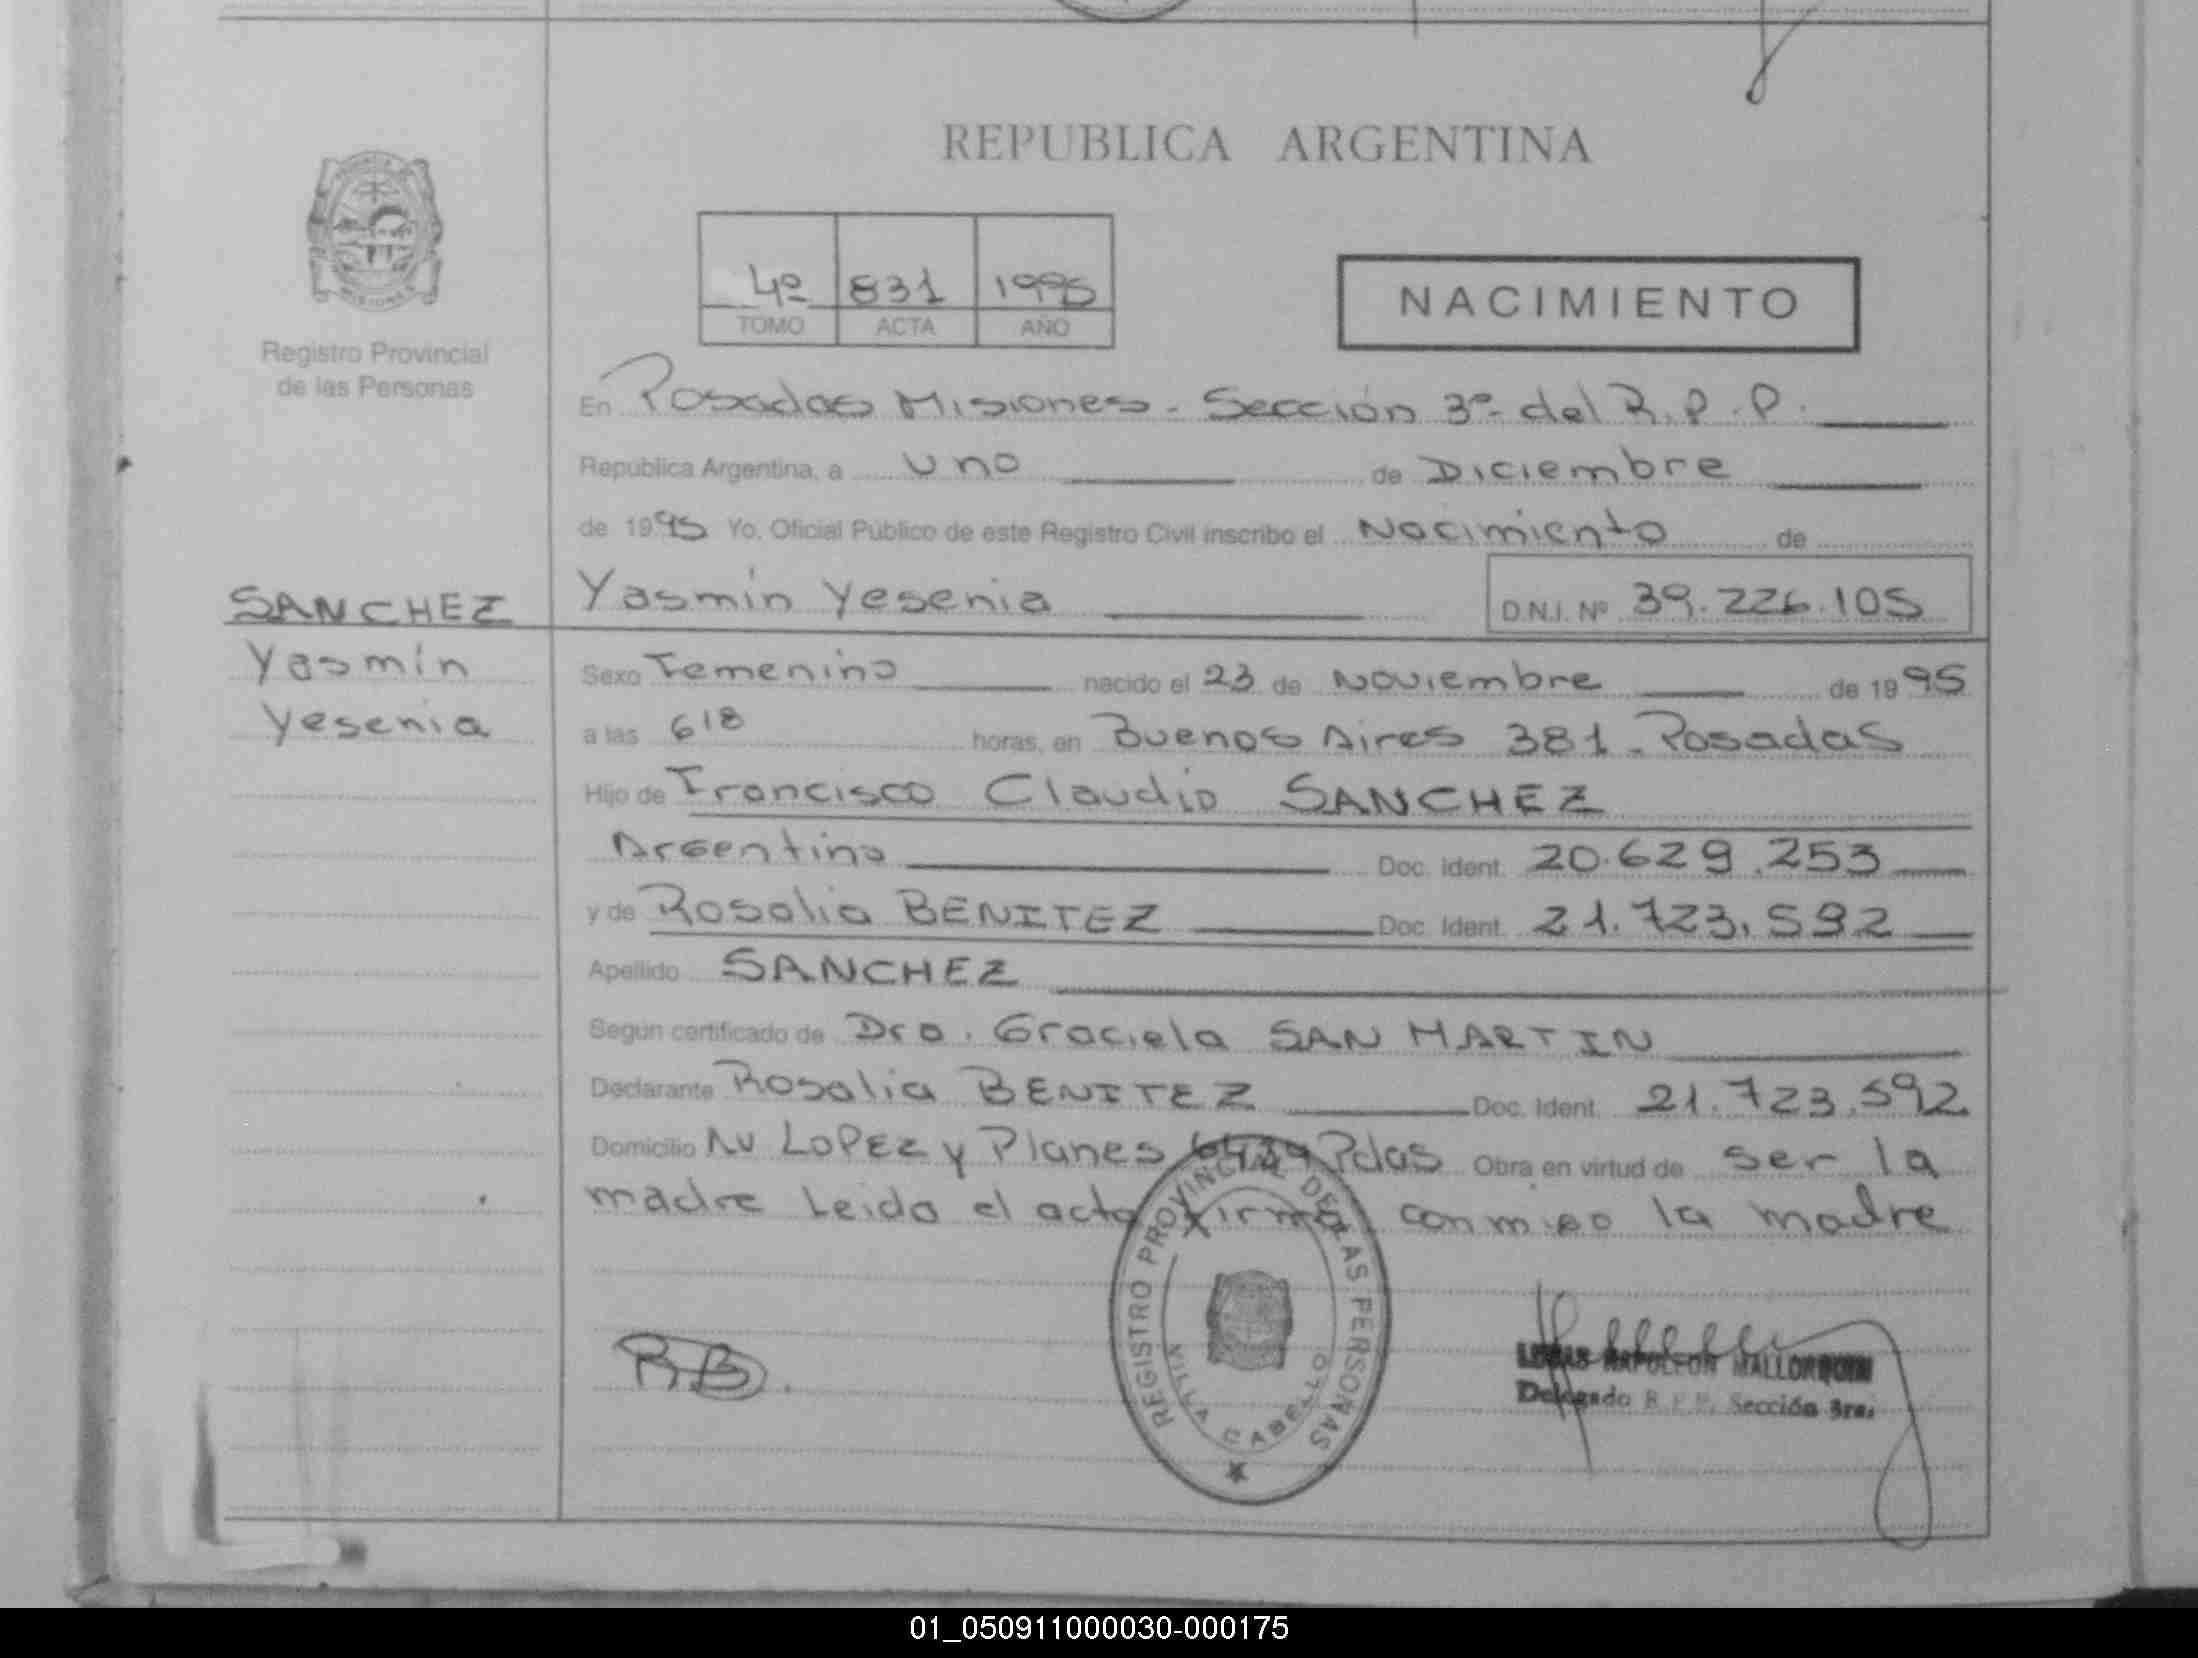 REPUBLICA ARGENTINA
MISIONES
Registro Provincial
de las Personas
4º 831 1995
TOMO ACTA AÑO
NACIMIENTO
En Posadas Misiones - Sección 3ª del R.P.P.
República Argentina, a uno de Diciembre
de 1995 Yo, Oficial Público de este Registro Civil inscribo el Nacimiento de
SANCHEZ
Yasmín
Yesenia
Yasmín Yesenia D.N.I. Nº 39.226.105
Sexo Femenino nacido el 23 de Noviembre de 1995
a las 618 horas, en Buenos Aires 381 - Posadas
Hijo de Francisco Claudio SANCHEZ
Argentino Doc. Ident. 20.629.253
y de Rosalia BENITEZ Doc. Ident. 21.723.592
Apellido SANCHEZ
Según certificado de Dra. Graciela SAN MARTIN
Declarante Rosalia BENITEZ Doc. Ident. 21.723.592
Domicilio Av LOPEZ y Planes Pdas Obra en virtud de ser la
madre Leido el acta firma conmigo la madre
RB
REGISTRO PROVINCIAL DE LAS PERSONAS
VILLA CABELLO
NAPOLEON
Delegado R.P.P. Sección 3ra.
01_050911000030-000175